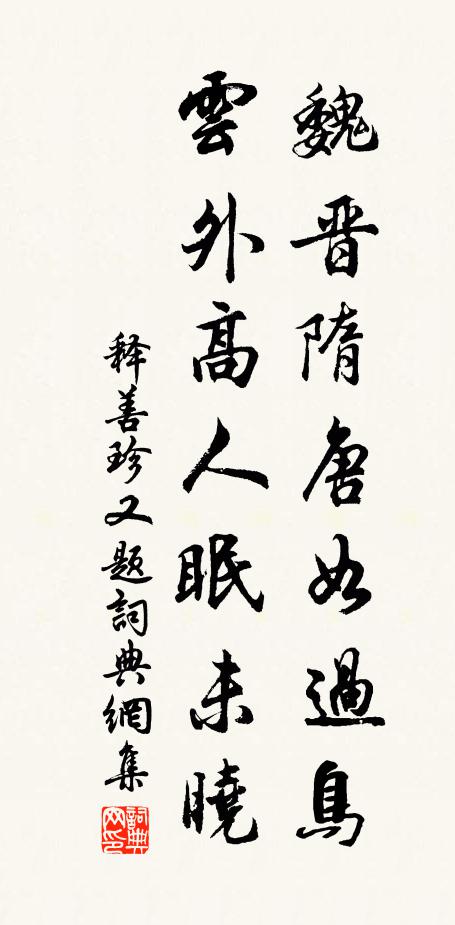 魏晋隋唐如過鳥
雲外高人眠未曉
释善珍又題詞典網集
詞典網印